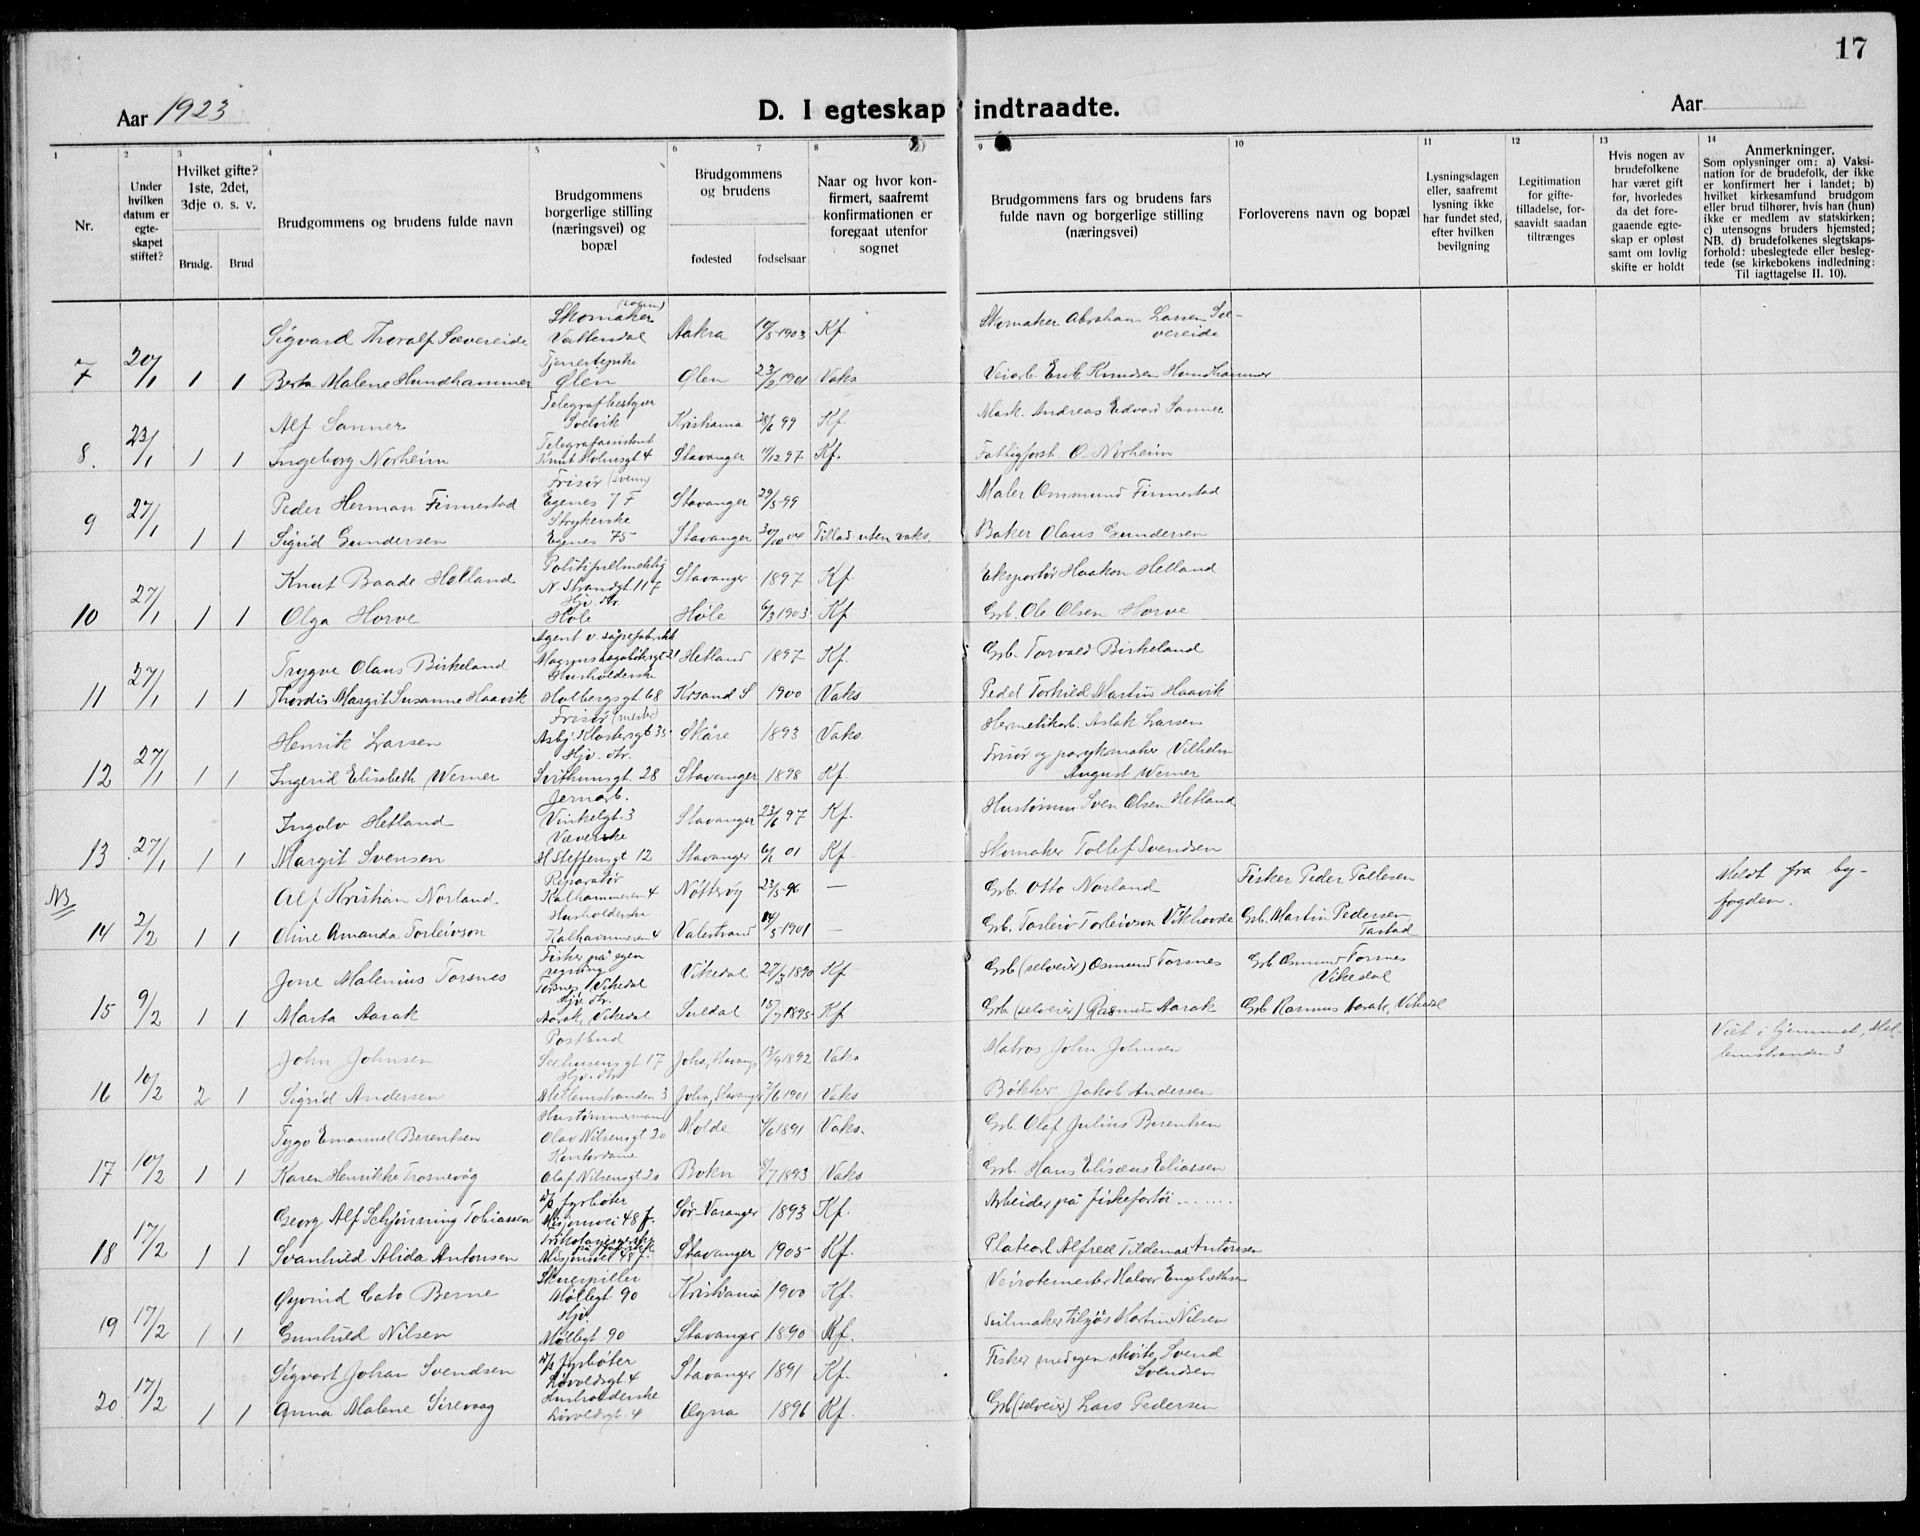 17
Aar 1923
D. I egteskap indtraadte.
Aar
1 2 3 4 5 6 7 8 9 10 11 12 13 14
Nr.
Under hvilken datum er egteskapet stiftet?
Hvilket gifte? 1ste, 2det, 3dje o. s. v.
Brudg. Brud
Brudgommens og brudens fulde navn
Brudgommens borgerlige stilling (næringsvei) og bopæl
Brudgommens og brudens
fødested fødselsaar
Naar og hvor konfirmert, saafremt konfirmationen er foregaat utenfor sognet
Brudgommens fars og brudens fars fulde navn og borgerlige stilling (næringsvei)
Forloverens navn og bopæl
Lysningsdagen eller, saafremt lysning ikke har fundet sted, efter hvilken bevilgning
Legitimation for giftetilladelse, forsaavidt saadan tiltrænges
Hvis nogen av brudefolkene har været gift før, hvorledes da det foregaaende egteskap er opløst samt om lovlig skifte er holdt
Anmerkninger.
Som oplysninger om: a) Vaksination for de brudefolk, der ikke er konfirmert her i landet; b) hvilket kirkesamfund brudgom eller brud tilhører, hvis han (hun) ikke er medlem av statskirken; c) utensogns bruders hjemsted; NB. d) brudefolkenes slegtskapsforhold: ubeslegtede eller beslegtede (se kirkebokens indledning: Til iagttagelse II. 10).
Sigvard Thoralf Sævereide Skomaker Vattendal Aakra 1903 Kf. Skomaker Abraham Larsen Sævereide
7 20/1 1 1 Berta Malene Hundhammer Tjenestepike Ølen Ølen 23/2 1901 Vaks Veiarb. Erik Knudsen Hundhammer
Alf Sanner Telegrafbestyrer Svelvik Kristiania 28/6 99 Kf. Mask. Andreas Edvard Sanner
8. 23/1 1 1 Ingeborg Norheim Telegrafassistent Knut Holmsgt 4 Stavanger 11/12 97 Kf. Fattigforst O. Norheim
Peder Herman Finnestad Frisør (svenn) Egenes 7 F Stavanger 29/5-99 Maler Ommund Finnestad
9 27/1 1 1 Sigrid Gundersen Strykerske Egenes 75 Stavanger 30/10 04 Tillad uten vaks. Baker Olaus Gundersen
Knut Baade Helland Politifuldmektig N. Strandgt. 117 Stavanger 1897 Kf. Eksportør Haakon Helland
10 27/1 1 1 Olga Horve Hjv. dtr. Høle Høle 6/3 1903 Kf Grb. Ole Olsen Horve
Trygve Olaus Birkeland Agent v. såpefabrikk Magnus Lagabøtersgt 21 Hetland 1897 Kf. Grb. Torvald Birkeland
11 27/1 1 1 Thordis Margit Susanne Haavik Husholderske Holbergsgt 68 Krsand S 1900 Vaks Pedel Torkild Martin Haavik
Henrik Larsen Frisør (mester) Asbj. Klostersgt 35 Skåre 1893 Vaks. Hermetikarb. Aslak Larsen
12 27/1 1 1 Ingerid Elisabeth Werner Hjv. dtr. Svithunsgt. 28 Stavanger 1898 Kf. Frisør og parykmaker Vilhelm August Werner
Ingolv Hetland Jernarb. Vinkelgt 3 Stavanger 23/6 97 Kf. Hustømm Sven Olsen Hetland
13 27/1 1 1 Margit Svensen Væverske St Steffensgt 12 Stavanger 6/1 01 Kf Skomaker Tollef Svendsen
NB Alf Kristian Norland Reparatør Kalhammeren 4 Nøtterøy 23/5-96 — Grb. Otto Norland Fisker Peder Tollesen Meldt fra byfogden.
14 2/2 1 1 Oline Amanda Torleivson Husholderske Kalhammeren 4 Valestrand 14/5-1901 — Grb. Torleiv Torleivson Vikhovde Grb. Martin Pedersen Tastad
Jone Malenius Torsnes Fisker på egen regning Torsnes, Vikedal Vikedal 27/3 1890 Kf Grb (selveier) Osmund Torsnes Grb Osmund Torsnes Vikedal
15 9/2 1 1 Marta Aarak Hjv. dtr. Aarak, Vikedal Suldal 15/7 1895 Kf Grb (selveier) Rasmus Aarak Grb Rasmus Aarak, Vikedal
John Johnsen Postbud Seehusensgt 17 Joh., Stavanger 13/9 1892 Vaks Matros John Johnsen Viet i hjemmet, Mellemstranden 3
16 10/2 2 1 Sigrid Andersen Hjv. dtr Mellemstranden 3 Joh., Stavanger 3/6 1901 Vaks Bøkker Jakob Andersen
Tygo Emanuel Berentsen Hustømmermand Olav Nilsensgt 20 Molde 4/6 1891 Vaks. Grb. Olaf Julius Berentsen
17 10/2 1 1 Karen Henrikke Trosnevåg Kontordame Olaf Nilsensgt 20 Bokn 8/7 1893 Vaks Grb. Hans Elisæus Eliassen
Georg Alf Schjønning Tobiassen d/s fyrbøter Misjonsvei 48 f. Sør-Varanger 1893 Kf. Arbeider på fiskefortøi .......
18 17/2 1 1 Svanhild Alida Antonsen Misjonsvei 48 f. Stavanger 1905 Kf. Platearb Alfred Tildemar Antonsen
Øyvind Cato Berne Skuespiller Møllegt. 90 Kristiania 1900 Kf. Veivokmester Halvor Engebrethsen
19 17/2 1 1 Gunhild Nilsen Hjv. Møllegt 90 Stavanger 1890 Kf. Seilmaker Elijas Martin Nilsen
Sigvart Johan Svendsen d/s fyrbøter Løvoldsgt. 4 Stavanger 1891 Kf. Fisker med egen skøite, Svend Svendsen
20 17/2 1 1 Anna Malene Sirevaag Husholderske Løvoldsgt. 4 Ogna 1896 Kf. Grb (selveier) Lars Pedersen